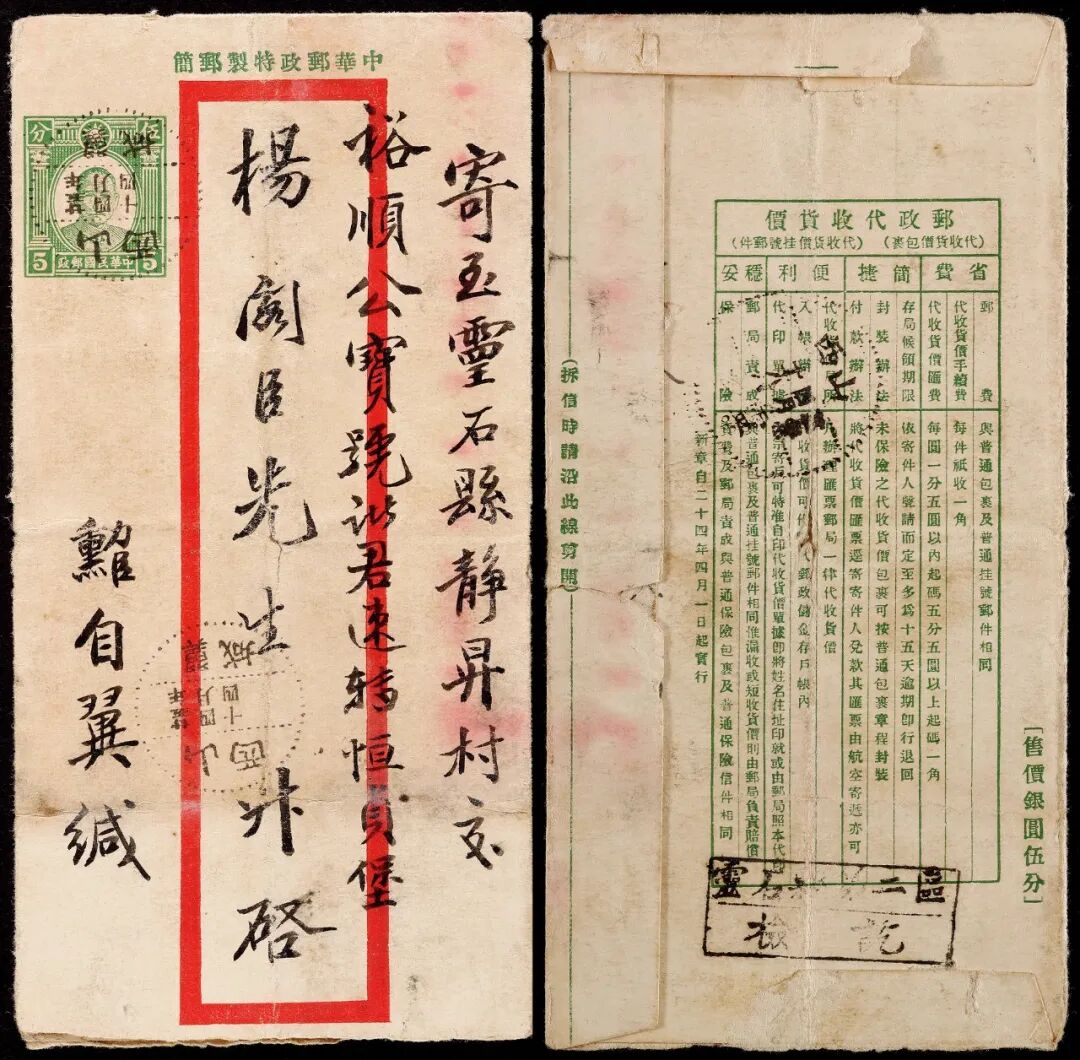 中華郵政特製郵簡
分伍
5 中華民國郵政 5
寄至靈石縣靜昇村交
裕順公寶號諸君速轉恒貞堡
楊閣臣先生升啓
自翼緘
翼城
山西
(拆信時請沿此線剪開)
郵政代收貨價
(代收貨價包裹) (代收貨價挂號郵件)
省費 簡捷 便利 穩妥
郵費 與普通包裹及普通挂號郵件相同
代收貨價手續費 每件祇收一角
代收貨價匯費 每圓一分五圓以內起碼五分五圓以上起碼一角
存局候領期限 依寄件人聲請而定至多為十五天逾期卽行退回
封裝辦法 未保險之代收貨價包裹可按普通包裹章程封裝
付款辦法 將代收貨價匯票逕寄寄件人兌款其匯票由航空寄遞亦可
代收 辦理匯票郵局一律代收貨價
入帳辦 收貨價可 郵政儲金存戶帳內
代印單據 寄 可特准自印代收貨價單據卽將姓名住址印就或由郵局照本代
郵局責成 與普通包裹及普通挂號郵件相同惟漏收或短收貨價則由郵局負責賠償
保險 費及郵局責成與普通保險包裹及普通保險信件相同
新章自二十四年四月一日起實行
[售價銀圓伍分]
靈石 二區
檢訖